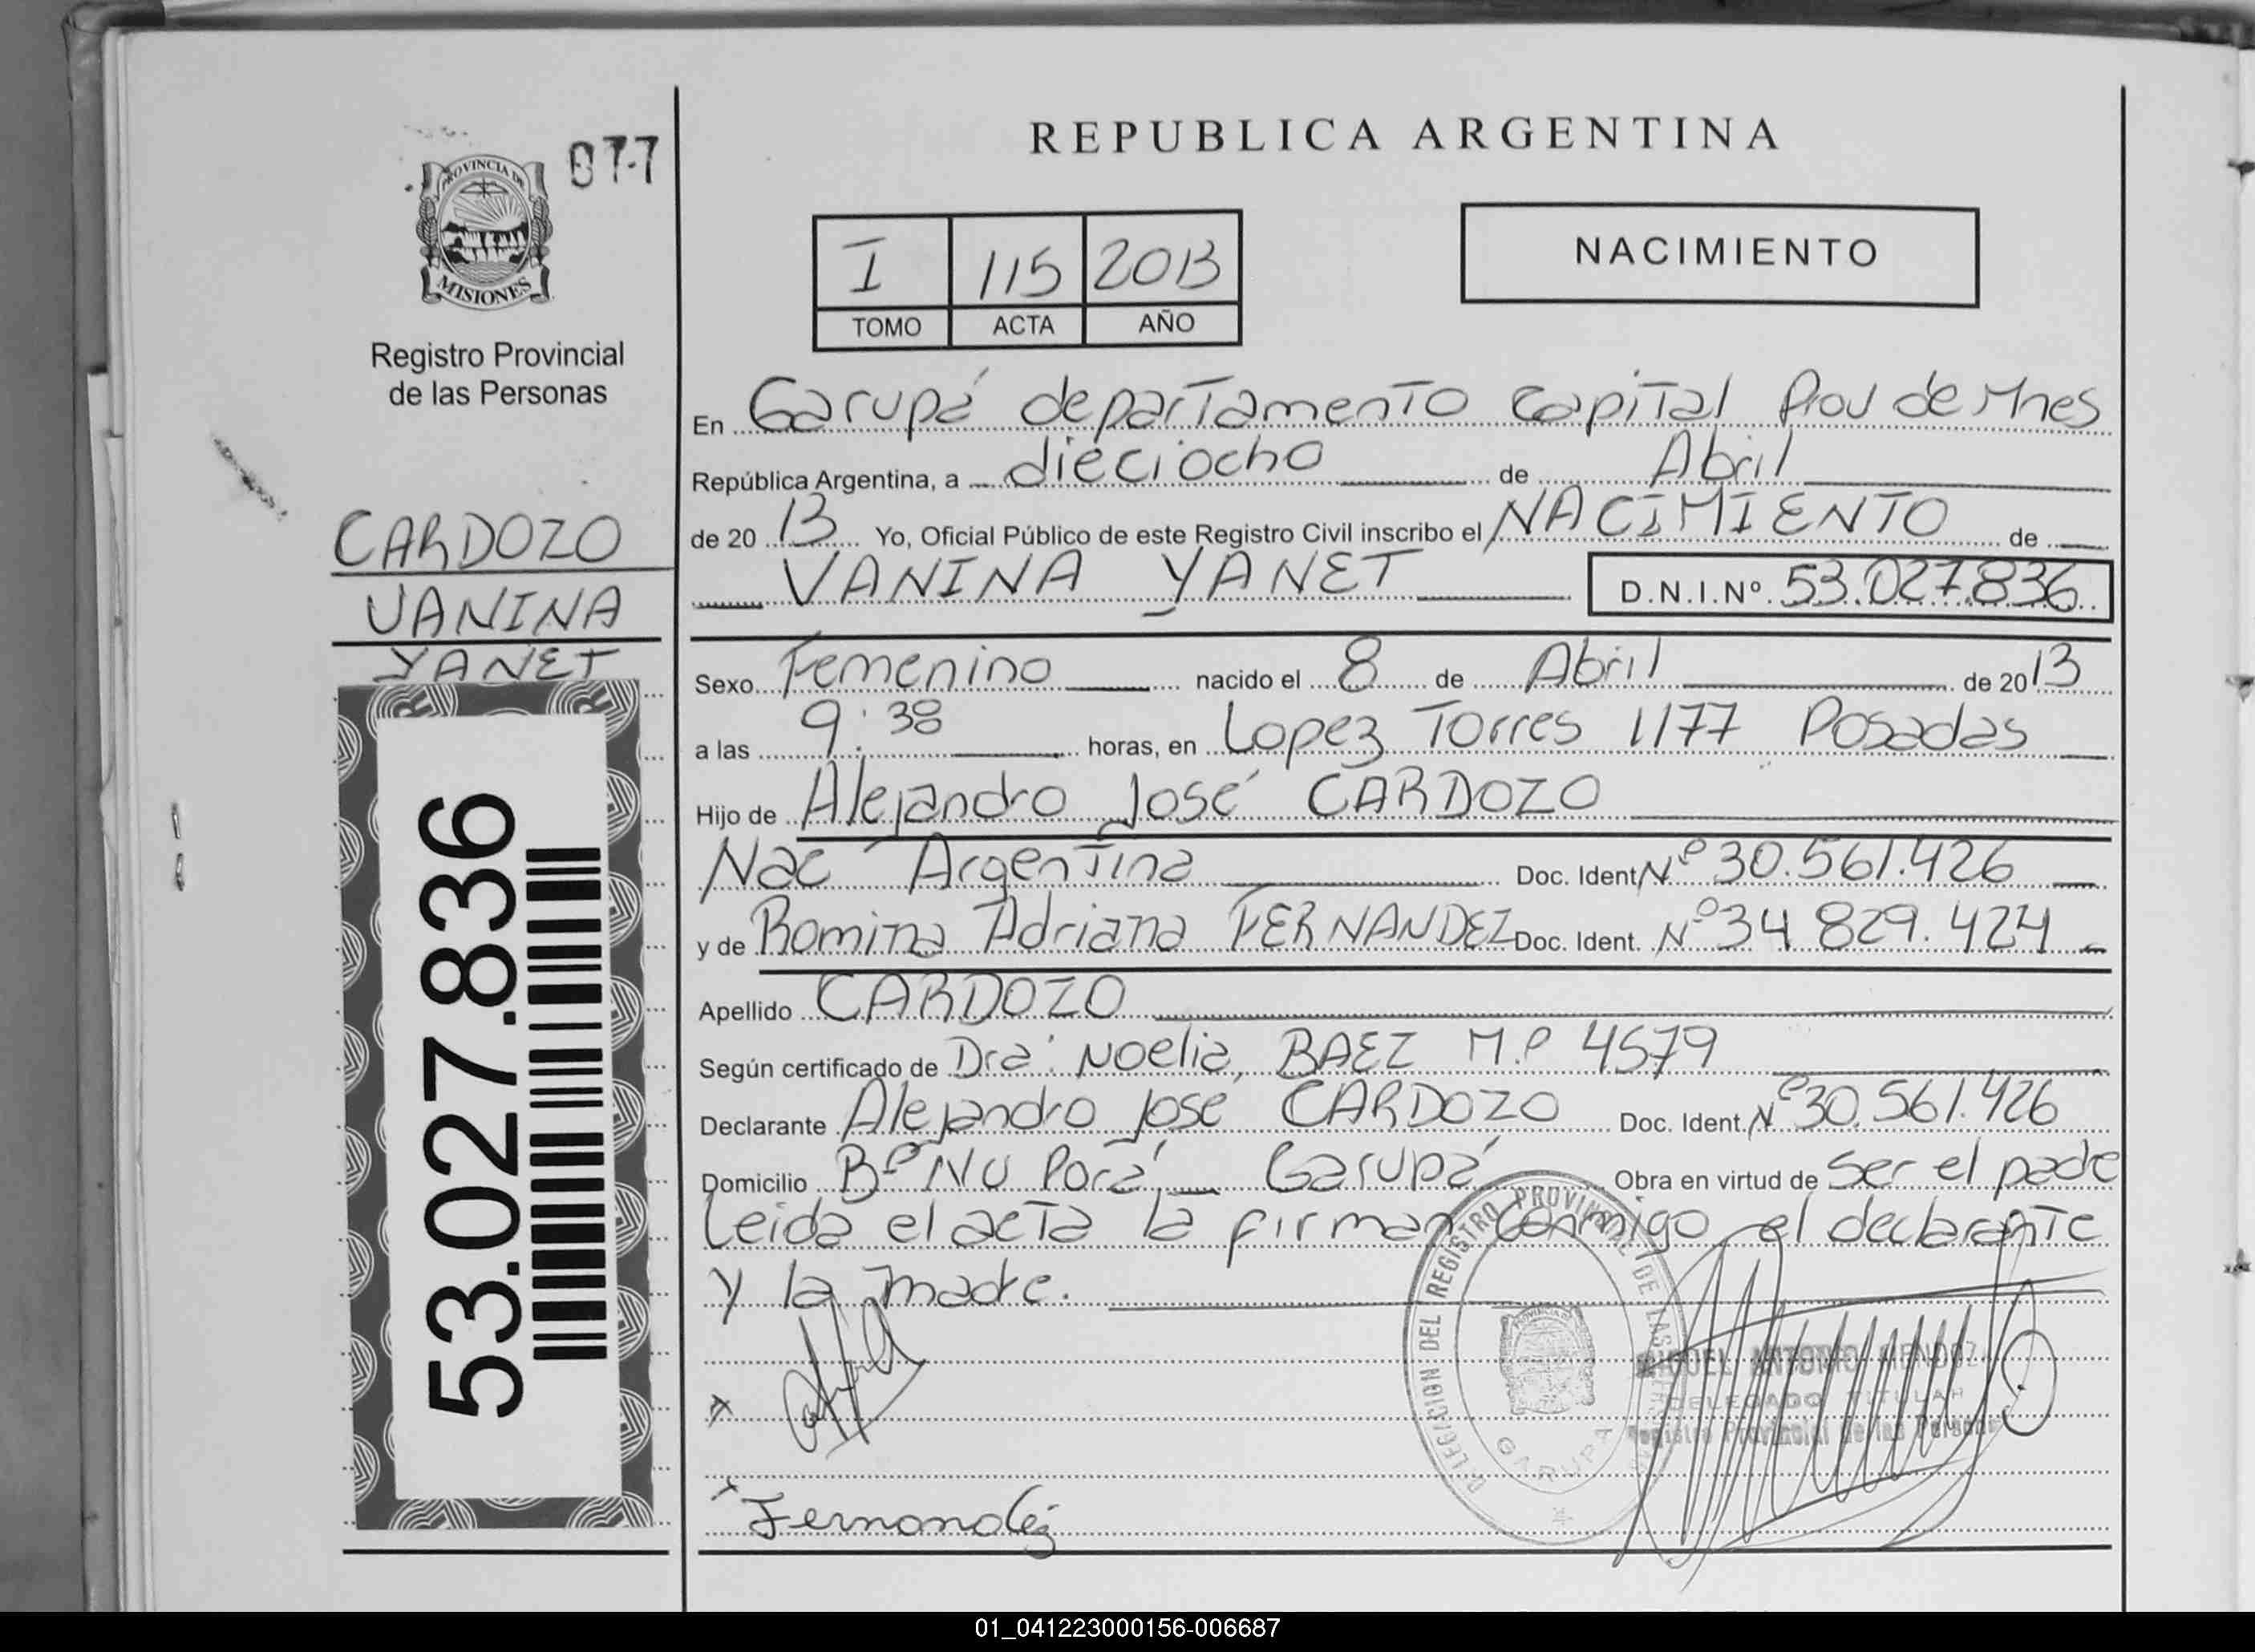 077
PROVINCIA DE
MISIONES
Registro Provincial
de las Personas
CARDOZO
VANINA
YANET
53.027.836
REPUBLICA ARGENTINA
I 115 2013
TOMO ACTA AÑO
NACIMIENTO
En Garupá departamento Capital Prov de Mnes
República Argentina, a dieciocho de Abril
de 20 13 Yo, Oficial Público de este Registro Civil inscribo el NACIMIENTO de
VANINA YANET D.N.I.Nº 53.027.836
Sexo Femenino nacido el 8 de Abril de 20 13
a las 9:38 horas, en Lopez Torres 1177 Posadas
Hijo de Alejandro José CARDOZO
Nac Argentina Doc. Ident. Nº 30.561.426
y de Romina Adriana FERNANDEZ Doc. Ident. Nº 34 829.424
Apellido CARDOZO
Según certificado de Dra. Noelia, BAEZ M.P 4579
Declarante Alejandro José CARDOZO Doc. Ident. Nº 30.561.426
Domicilio Bº Ñu Porá, Garupá Obra en virtud de ser el padre
Leida el acta la firman conmigo el declarante
y la madre.
DELEGACION DEL REGISTRO PROVINCIAL DE LAS
GARUPA
MIGUEL ANTONIO MENDOZ
DELEGADO TITULAR
Registro Provincial de las Personas
x
x Fernandez
01_041223000156-006687